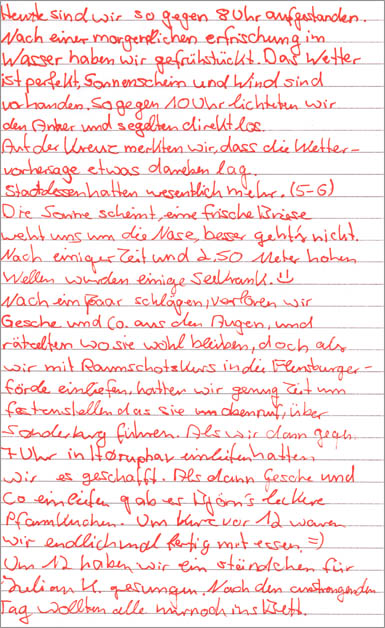 Heute sind wir so gegen 8 Uhr aufgestanden.
Nach einer morgentlichen erfrischung im
Wasser haben wir gefrühstückt. Das Wetter
ist perfekt, Sonnenschein und Wind sind
vorhanden. So gegen 10 Uhr lichteten wir
den Anker und segelten direkt los.
Auf der Kreuz merkten wir, dass die Wetter-
vorhersage etwas daneben lag.
Stattdessen hatten wesentlich mehr. (5-6)
Die Sonne scheint, eine frische Briese
weht uns um die Nase, besser geht's nicht.
Nach einiger Zeit und 2,50 Meter hohen
Wellen wurden einige Seekrank.
Nach ein paar schlägen, verloren wir
Gesche und Co. aus den Augen, und
rätselten wo sie wohl bleiben, doch als
wir mit Raumschotskurs in die Flensburger-
förde einliefen, hatten wir genug Zeit um
festenstellen das sie um über
Sonderburg führen. Als wir dann gegn
7 Uhr in einliefen hatten
wir es geschafft. Als dann Gesche und
Co einliefen gab es Björn's leckere
Pfannkuchen. Um kurz vor 12 waren
wir endlich mal fertig mit essen. =)
Um 12 haben wir ein ständchen für
Julian K. gesungen. Nach den anstrengenden
Tag wollten alle nurnoch ins Bett.